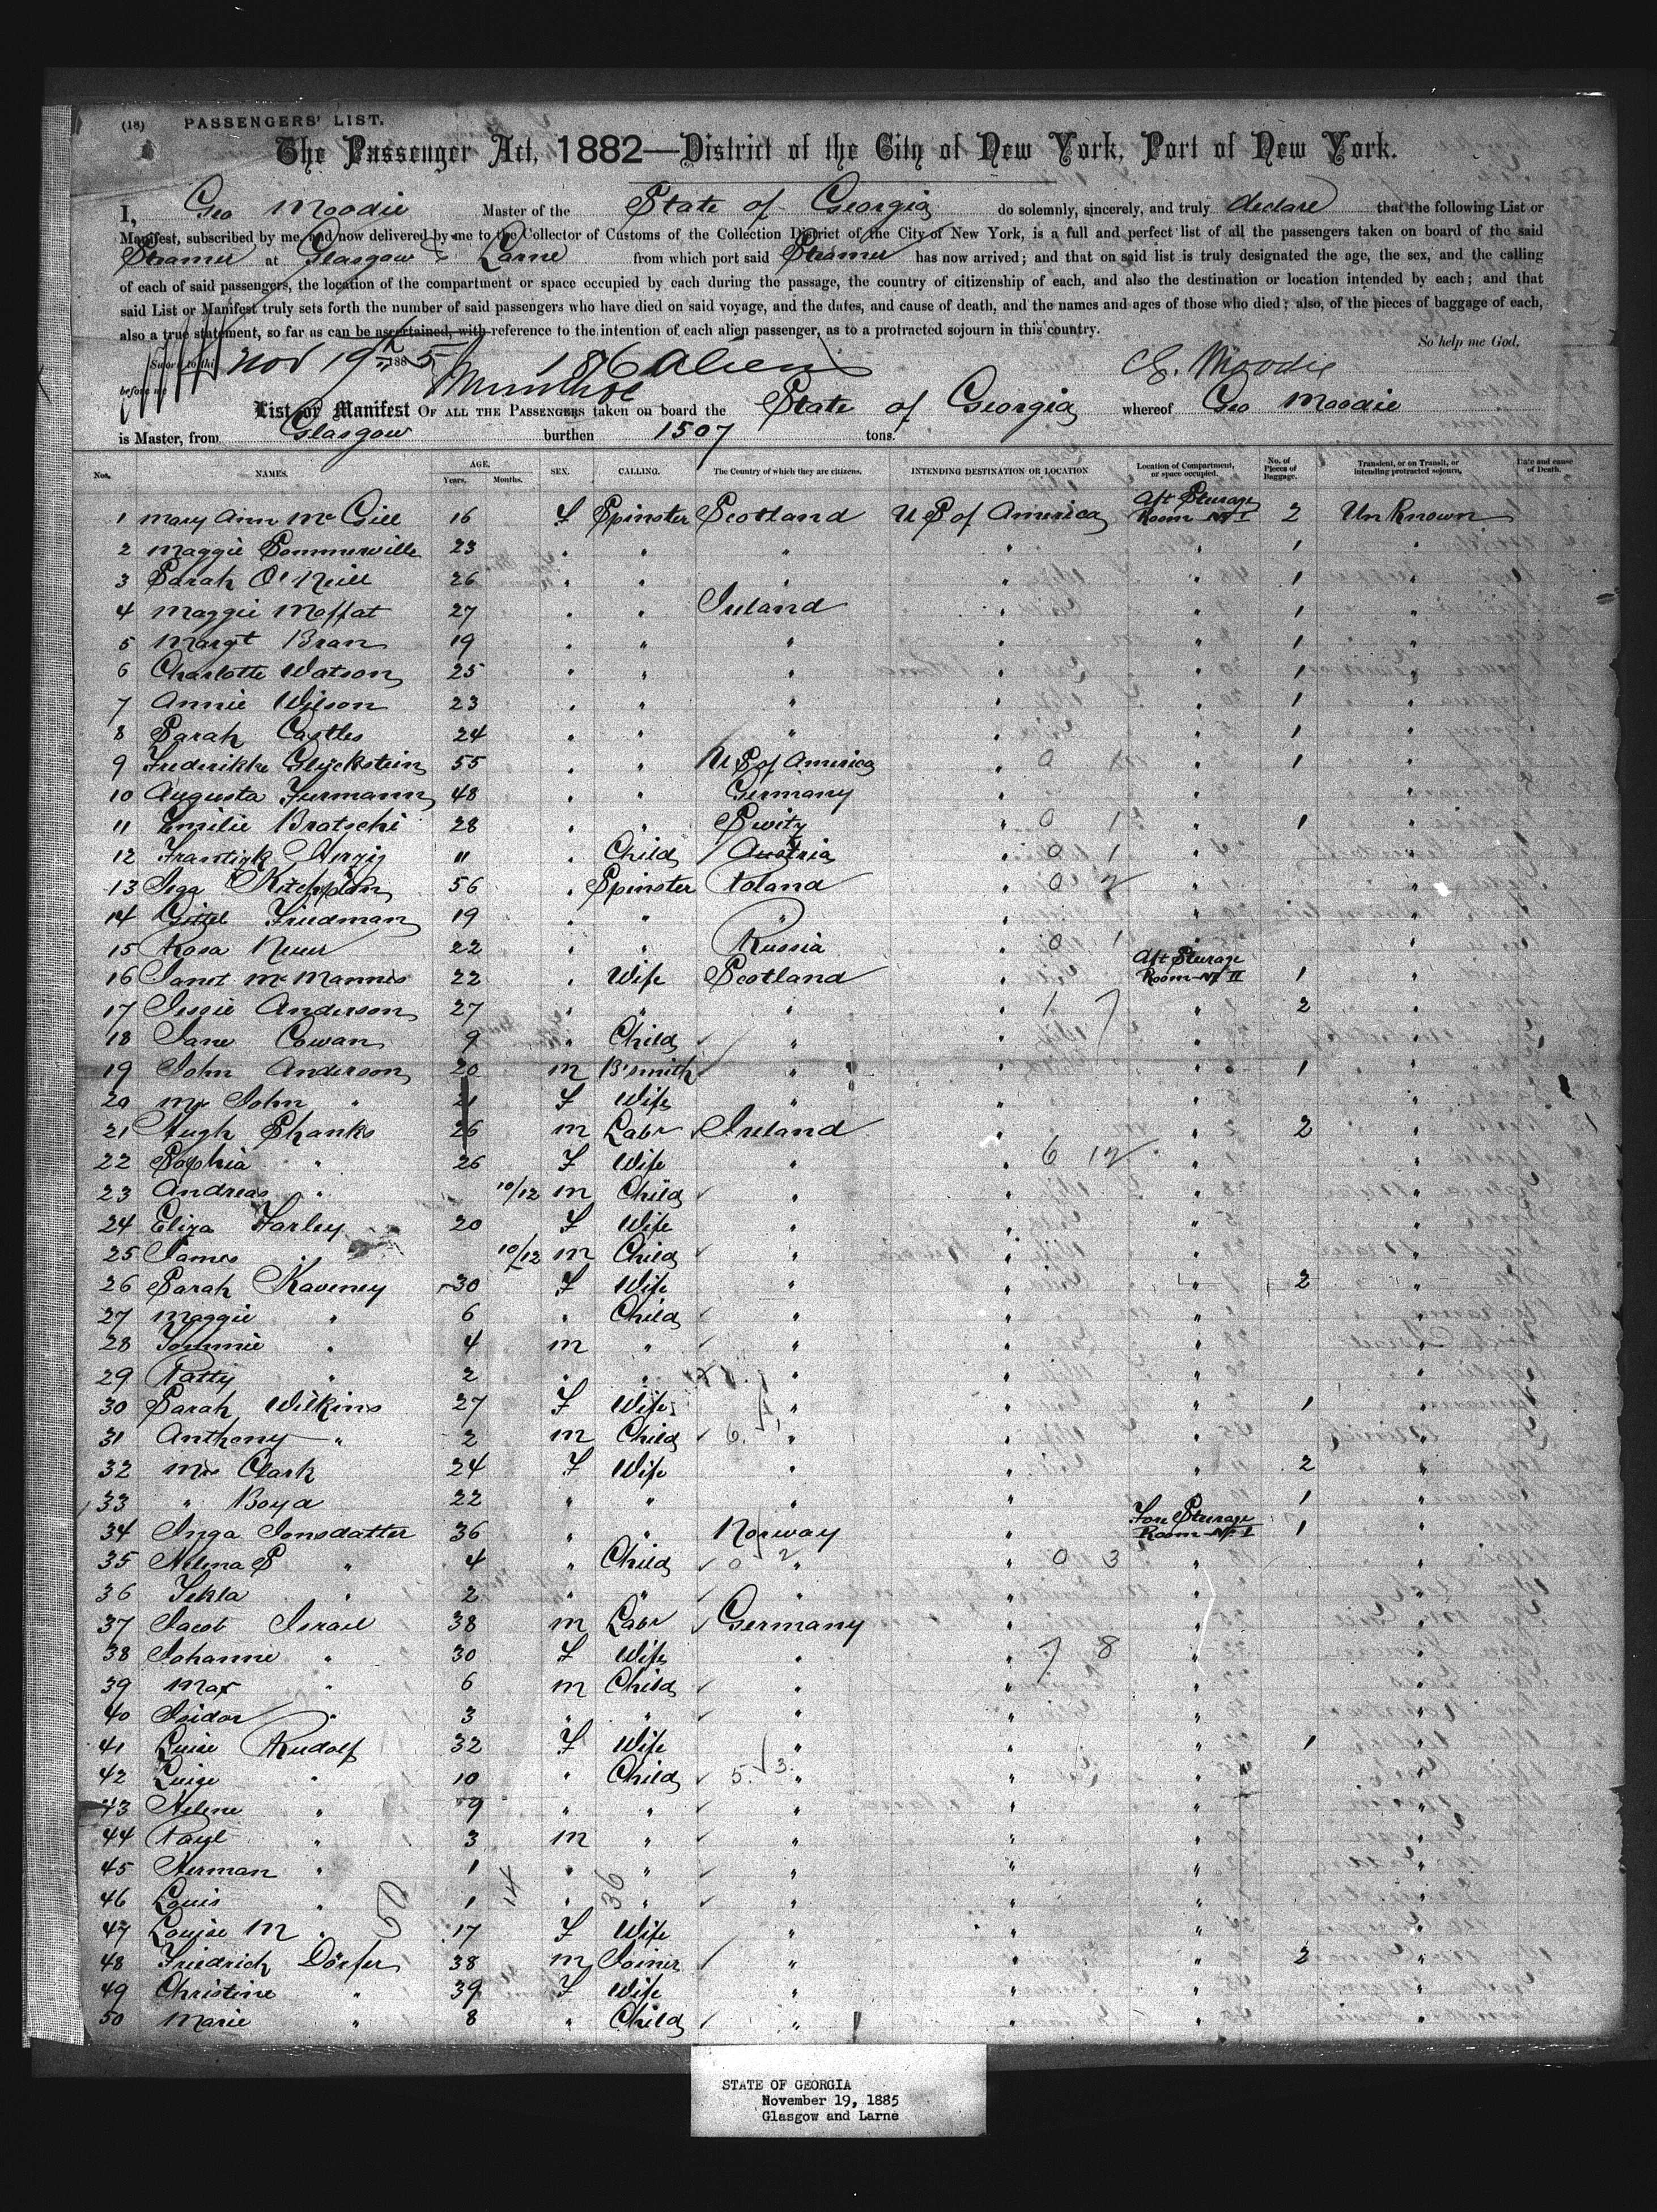 (18) PASSENGERS' LIST.
The Passenger Act, 1882—District of the City of New York, Port of New York.
I, Geo Moodie Master of the State of Georgia do solemnly, sincerely, and truly declare that the following List or
Manifest, subscribed by me, and now delivered by me to the Collector of Customs of the Collection District of the City of New York, is a full and perfect list of all the passengers taken on board of the said
Steamer at Glasgow & Larne from which port said Steamer has now arrived; and that on said list is truly designated the age, the sex, and the calling
of each of said passengers, the location of the compartment or space occupied by each during the passage, the country of citizenship of each, and also the destination or location intended by each; and that
said List or Manifest truly sets forth the number of said passengers who have died on said voyage, and the dates, and cause of death, and the names and ages of those who died; also, of the pieces of baggage of each,
also a true statement, so far as can be ascertained, with reference to the intention of each alien passenger, as to a protracted sojourn in this country.
So help me God,
Sworn to this Nov 19th 1885 186 Aliens G. Moodie
before me
List or Manifest OF ALL THE PASSENGERS taken on board the State of Georgia whereof Geo Moodie
is Master, from Glasgow burthen 1507 tons.
Nos. NAMES. AGE. Years. Months. SEX. CALLING. The Country of which they are citizens. INTENDING DESTINATION OR LOCATION Location of Compartment, or space occupied. No. of Pieces of Baggage. Transient, or on Transit, or intending protracted sojourn. Date and cause of Death.
1 Mary Ann McGill 16 F Spinster Scotland U S of America Aft Sturage Room No I 2 UnKnown
2 Maggie Sommerville 23 " " " " " 1 "
3 Sarah O'Neill 26 " " " " " 1 "
4 Maggie Moffat 27 " " Ireland " " 1 "
5 Margt Bran 19 " " " " " 1 "
6 Charlotte Watson 25 " " " " " 1 "
7 Annie Wilson 23 " " " " " 1 "
8 Sarah Castles 24 " " " " " 1 "
9 Frederikke Glyckstein 55 " " U S of America " 0 " 1 "
10 Augusta Furmann 48 " " Germany " " "
11 Emilie Bratschi 28 " " Switz " 0 1 " 1 "
12 Herzig 11 " Child Austria " 0 1 " "
13 56 " Spinster Poland " 0 2 " "
14 Gittel Friedman 19 " " " " " "
15 Rosa Neuer 22 " " Russia " 0 1 " "
16 Janet McMannes 22 " Wife Scotland " Aft Sturage Room No II 1 "
17 Jessie Anderson 27 " " " " 1 7 " 2 "
18 Jane Cowan 9 " Child " " " "
19 John Anderson 20 m B'smith " " " 1 "
20 Mrs John " 21 F Wife " " " "
21 Hugh Shanks 26 m Labr Ireland " " 2 "
22 Sophia " 26 F Wife " " 6 12 " "
23 Andreas " 10/12 m Child " " " "
24 Eliza Farley 20 F Wife " " " "
25 James " 10/12 m Child " " " "
26 Sarah Kaveney 30 F Wife " " " 2 "
27 Maggie " 6 " Child " " " "
28 Tommie " 4 m " " " " "
29 Patty " 2 " " " " " "
30 Sarah Wilkins 27 F Wife " " " 1 "
31 Anthony " 2 m Child 6 " " " "
32 Mrs Clark 24 F Wife " " " 2 "
33 " Boyd 22 " " " " " 1 "
34 Inga Jonsdatter 36 " " Norway " Fore Sturage Room No I 1 "
35 Helma S " 4 " Child 0 2 " " 0 3 " "
36 Tekla " 2 " " " " " "
37 Jacob Israel 38 m Labr Germany " " "
38 Johanne " 30 F Wife " " 7 8 " "
39 Max " 6 m Child " " " "
40 Isidor " 3 " " " " " "
41 Luise Rudolf 32 F Wife " " " 1 "
42 Luise " 10 " Child 5 3 " " " "
43 Helene " 9 " " " " " "
44 " 3 m " " " " "
45 Herman " 1 " " " " " "
46 Louis " 1 " " " " " "
47 Louise M " 17 F Wife " " " "
48 Friedrich Dörfer 38 m Joiner " " " 2 "
49 Christine " 39 F Wife " " " "
50 Marie " 8 " Child " " " "
STATE OF GEORGIA
November 19, 1885
Glasgow and Larne